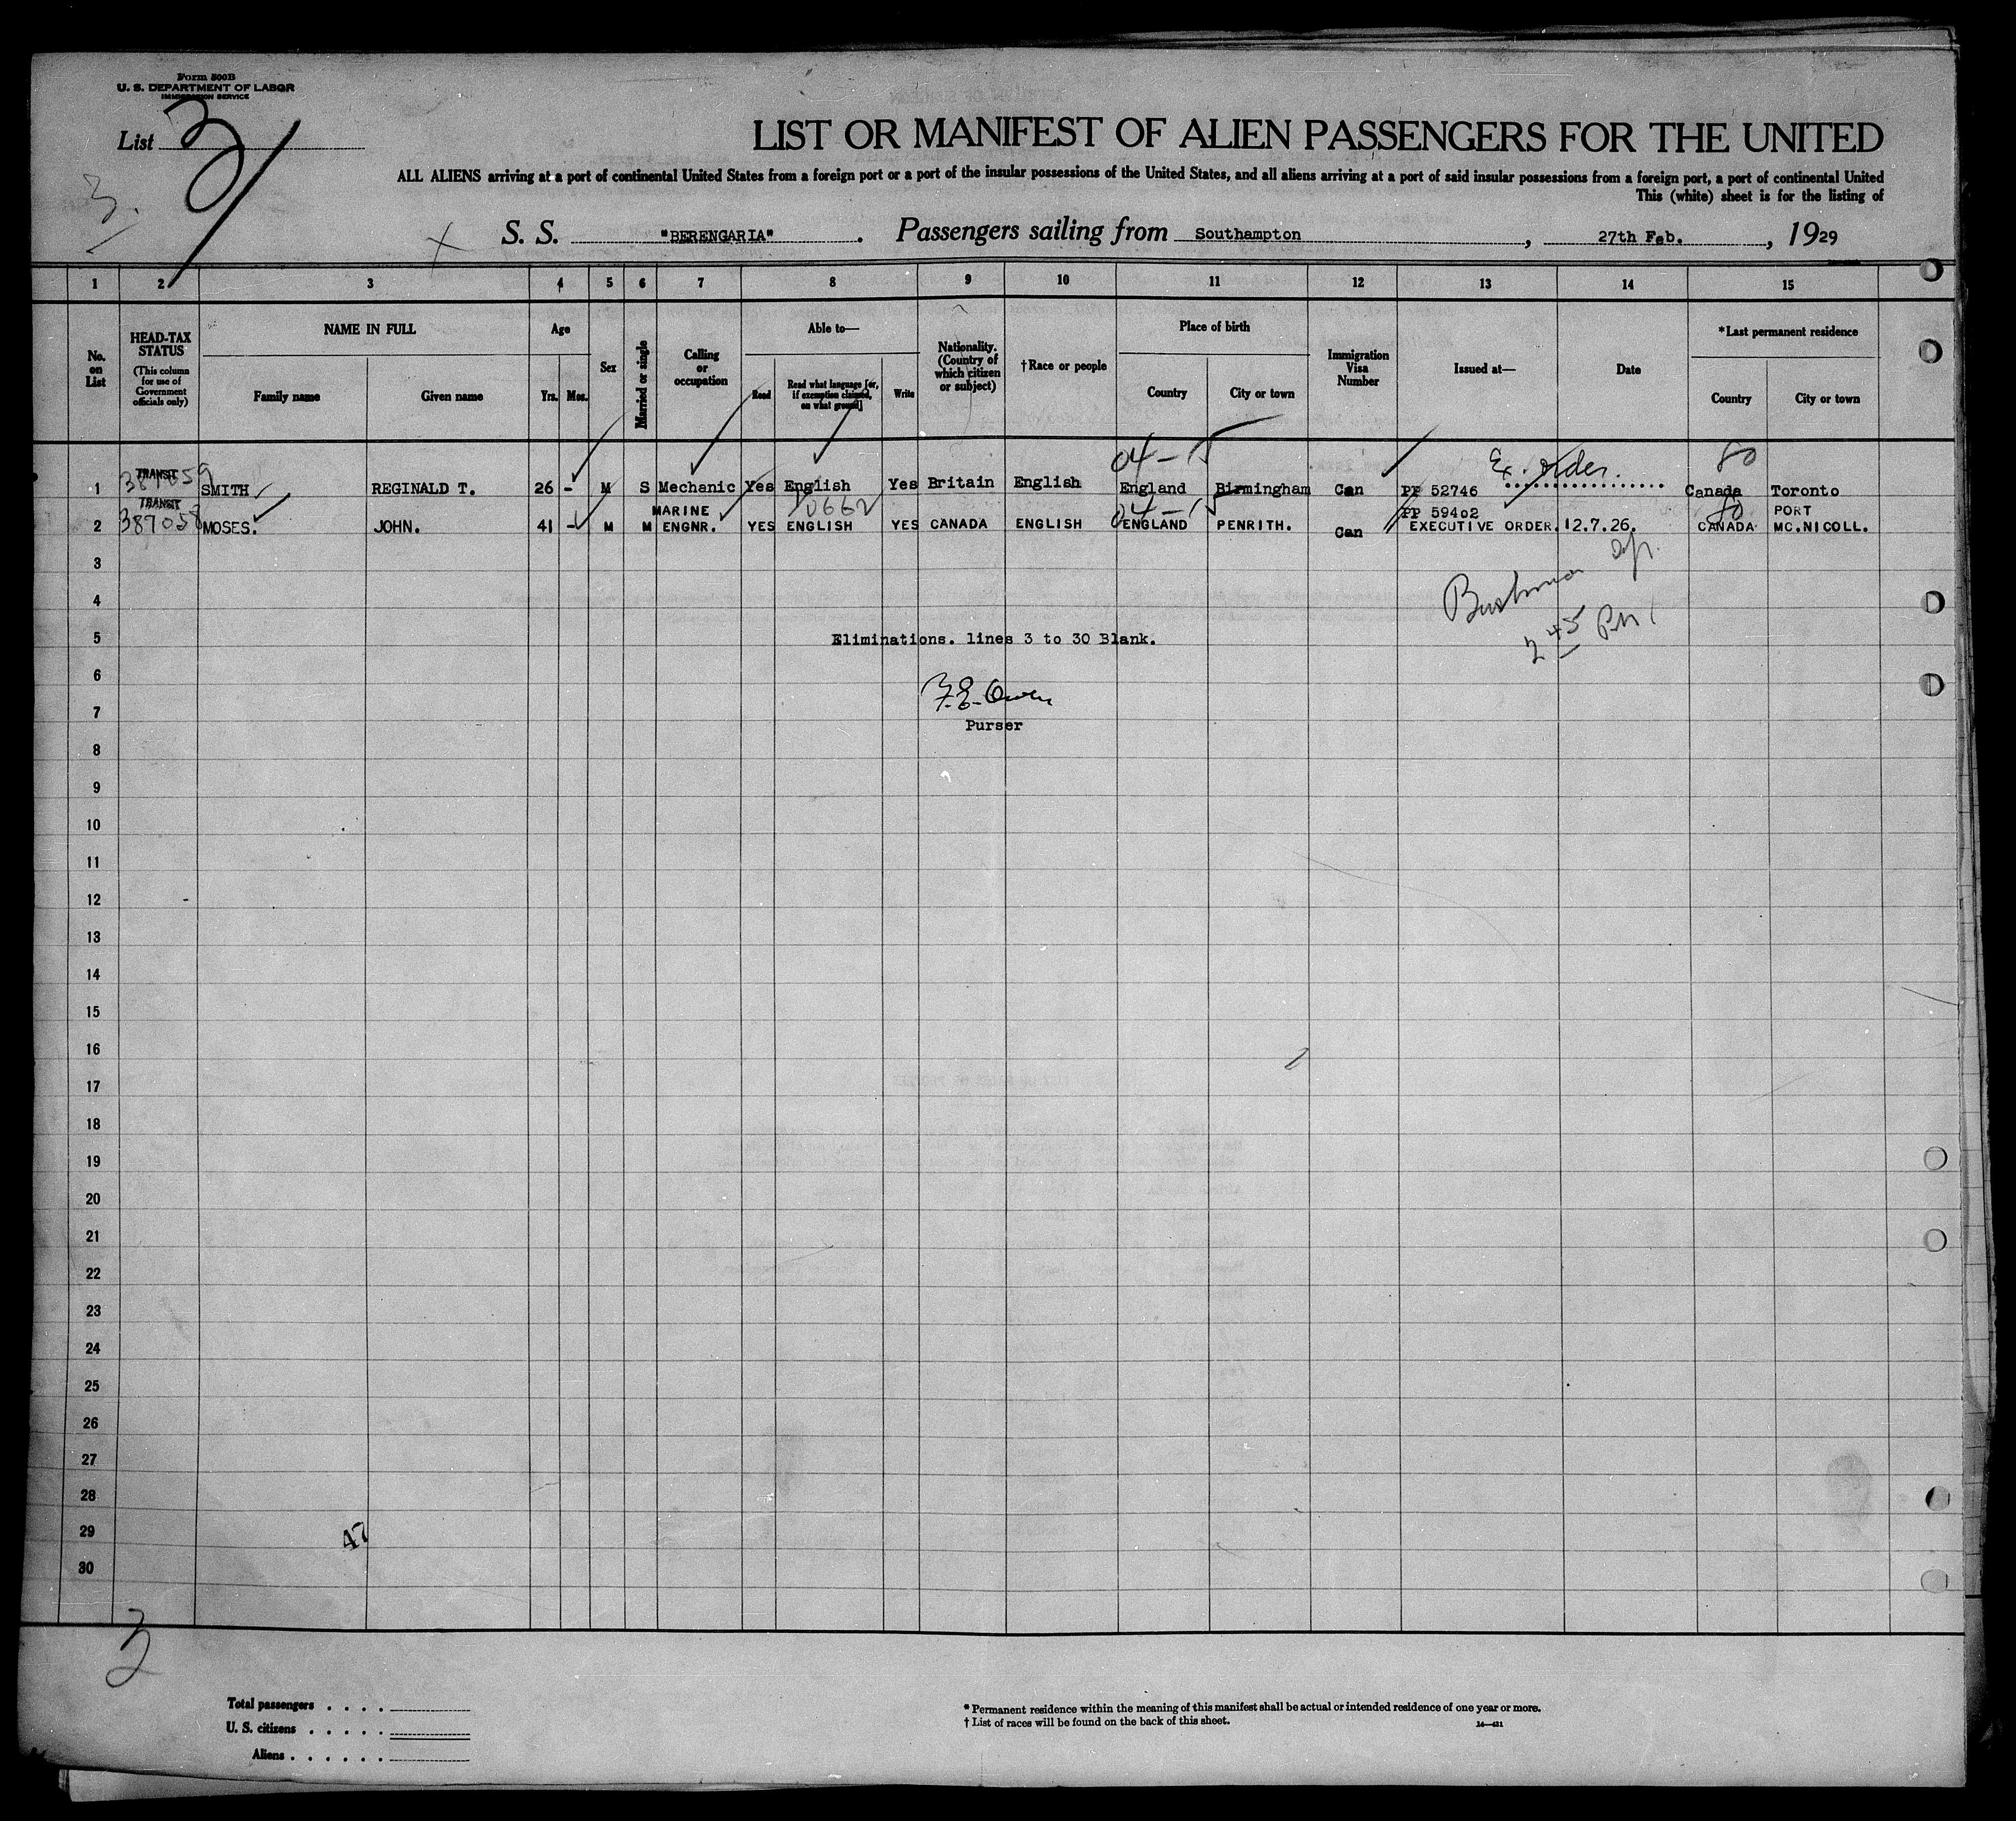 Form 500B
U. S. DEPARTMENT OF LABOR
IMMIGRATION SERVICE
List 3
3.
LIST OR MANIFEST OF ALIEN PASSENGERS FOR THE UNITED
ALL ALIENS arriving at a port of continental United States from a foreign port or a port of the insular possessions of the United States, and all aliens arriving at a port of said insular possessions from a foreign port, a port of continental United
This (white) sheet is for the listing of
S. S. "BERENGARIA". Passengers sailing from Southampton, 27th Feb., 1929
1 2 3 4 5 6 7 8 9 10 11 12 13 14 15
No. on List
HEAD-TAX STATUS (This column for use of Government officials only)
NAME IN FULL
Family name Given name
Age
Yrs. Mos.
Sex
Married or single
Calling or occupation
Able to—
Read Read what language [or, if exemption claimed, on what ground] Write
Nationality. (Country of which citizen or subject)
†Race or people
Place of birth
Country City or town
Immigration Visa Number
Issued at—
Date
*Last permanent residence
Country City or town
04-15 Ex. order. 80
1 TRANSIT 387059 SMITH REGINALD T. 26 - M S Mechanic Yes English Yes Britain English England Birmingham Can PP 52746 Canada Toronto
30662 04-15 80
2 TRANSIT 387058 MOSES. JOHN. 41 - M M MARINE ENGNR. YES ENGLISH YES CANADA ENGLISH ENGLAND PENRITH. Can PP 59402 EXECUTIVE ORDER. 12.7.26. CANADA PORT MC.NICOLL.
3
4
2 45 PM
5 Eliminations. lines 3 to 30 Blank.
6
F.E. Owen
7
Purser
8
9
10
11
12
13
14
15
16
17
18
19
20
21
22
23
24
25
26
27
28
29
47
30
3
Total passengers . . . .
U. S. citizens . . . . .
Aliens . . . . . .
* Permanent residence within the meaning of this manifest shall be actual or intended residence of one year or more.
† List of races will be found on the back of this sheet.
14—421